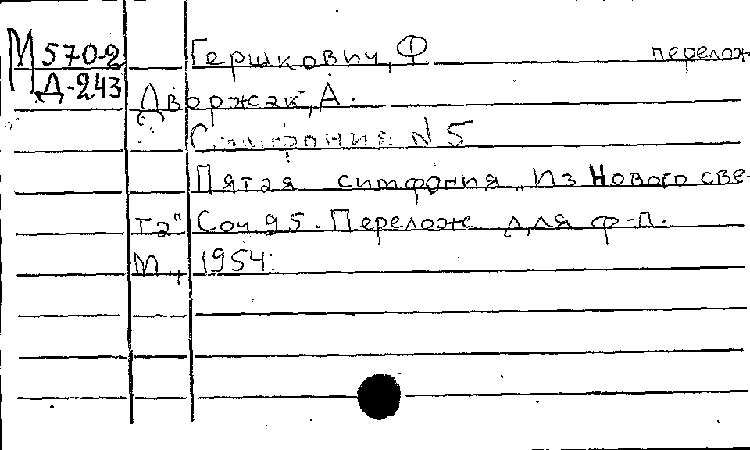 М 570-2 Гершкович, Ф перелож
Д-243
Дворжак, А.
Симфония N 5
Пятая симфония „Из Нового све-
та" Соч 95. Перелож для ф-п.
М, 1954.